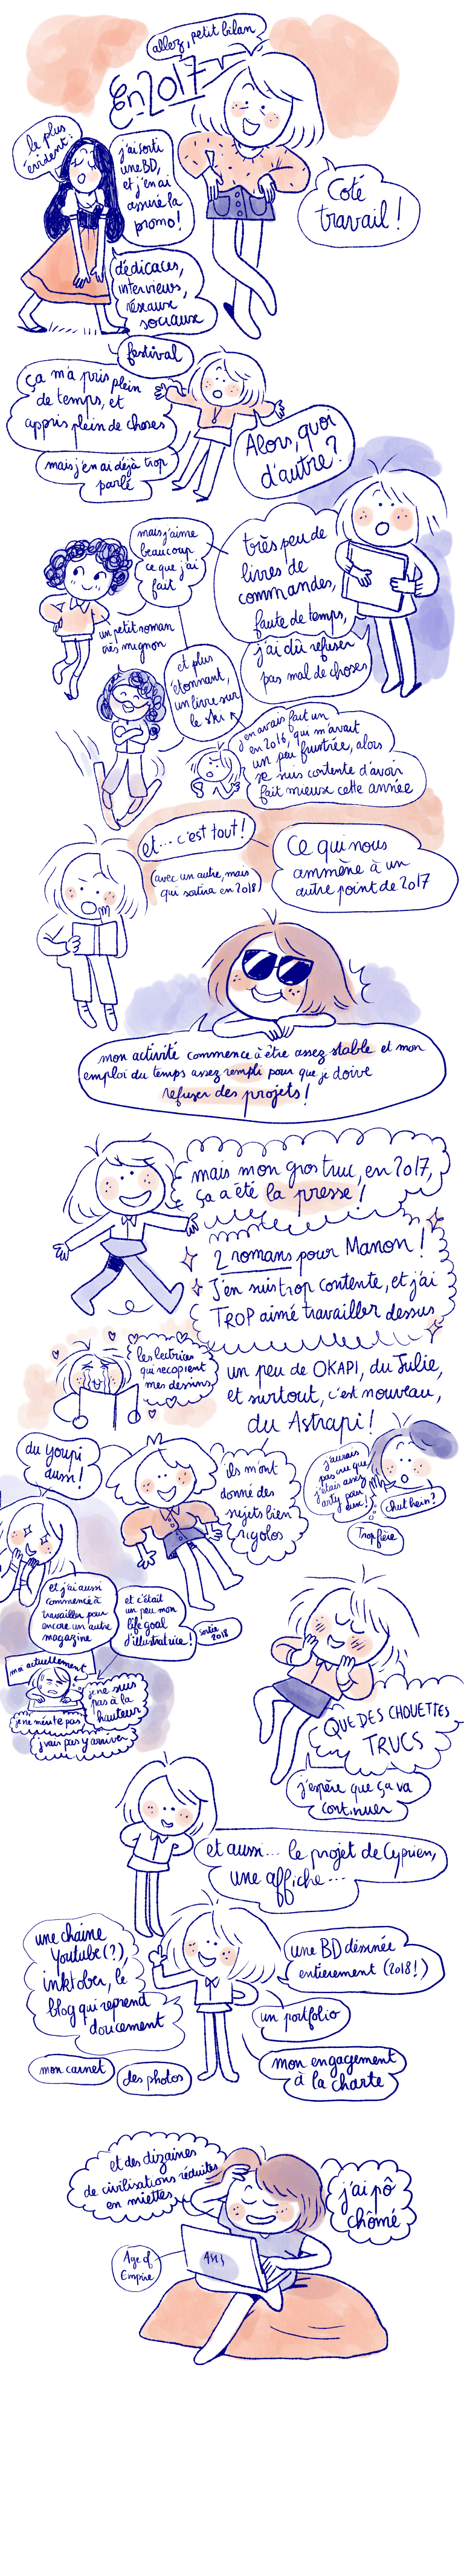 allez, petit bilan
En 2017
Coté
travail !
le plus
évident :
j'ai sorti
une BD,
et j'en ai
assuré la
promo !
dédicaces,
interviews,
réseaux
sociaux
festival
ça m'a pris plein
de temps, et
appris plein de choses
mais j'en ai déjà trop
parlé
Alors, quoi
d'autre ?
très peu de
livres de
commandes,
faute de temps,
j'ai dû refuser
pas mal de choses
mais j'aime
beaucoup
ce que j'ai
fait
un petit roman
très mignon
et plus
étonnant,
un livre sur
le ski
j'en avais fait un
en 2016, qui m'avait
un peu frustrée, alors
je suis contente d'avoir
fait mieux cette année
et... c'est tout !
(avec un autre, mais
qui sortira en 2018)
Ce qui nous
ammène à un
autre point de 2017
mon activité commence à être assez stable et mon
emploi du temps assez rempli pour que je doive
refuser des projets !
mais mon gros truc, en 2017,
ça a été la presse !
2 romans pour Manon !
J'en suis trop contente, et j'ai
TROP aimé travailler dessus
les lectrices
qui recopient
mes dessins
un peu de OKAPI, du Julie,
et surtout, c'est nouveau,
du Astrapi !
du Youpi
aussi !
ils m'ont
donné des
sujets bien
rigolos
j'aurais
pas cru que
j'étais assez
arty pour
eux !
chut hein ?
Trop fière
et j'ai aussi
commencé à
travailler pour
encore un autre
magazine
et c'était
un peu mon
life goal
d'illustratrice !
sortie
2018
moi actuellement
je ne suis
pas à la
hauteur
je ne mérite pas
j'vais pas y arriver
QUE DES CHOUETTES
TRUCS
j'espère que ça va
continuer
et aussi... le projet de Cyprien,
une affiche...
une chaine
Youtube (?)
inktober, le
blog qui reprend
doucement
une BD dessinée
entièrement (2018 !)
un portfolio
mon carnet
des photos
mon engagement
à la charte
et des dizaines
de civilisations réduites
en miettes
j'ai pô
chômé
Age of
Empire
ASUS